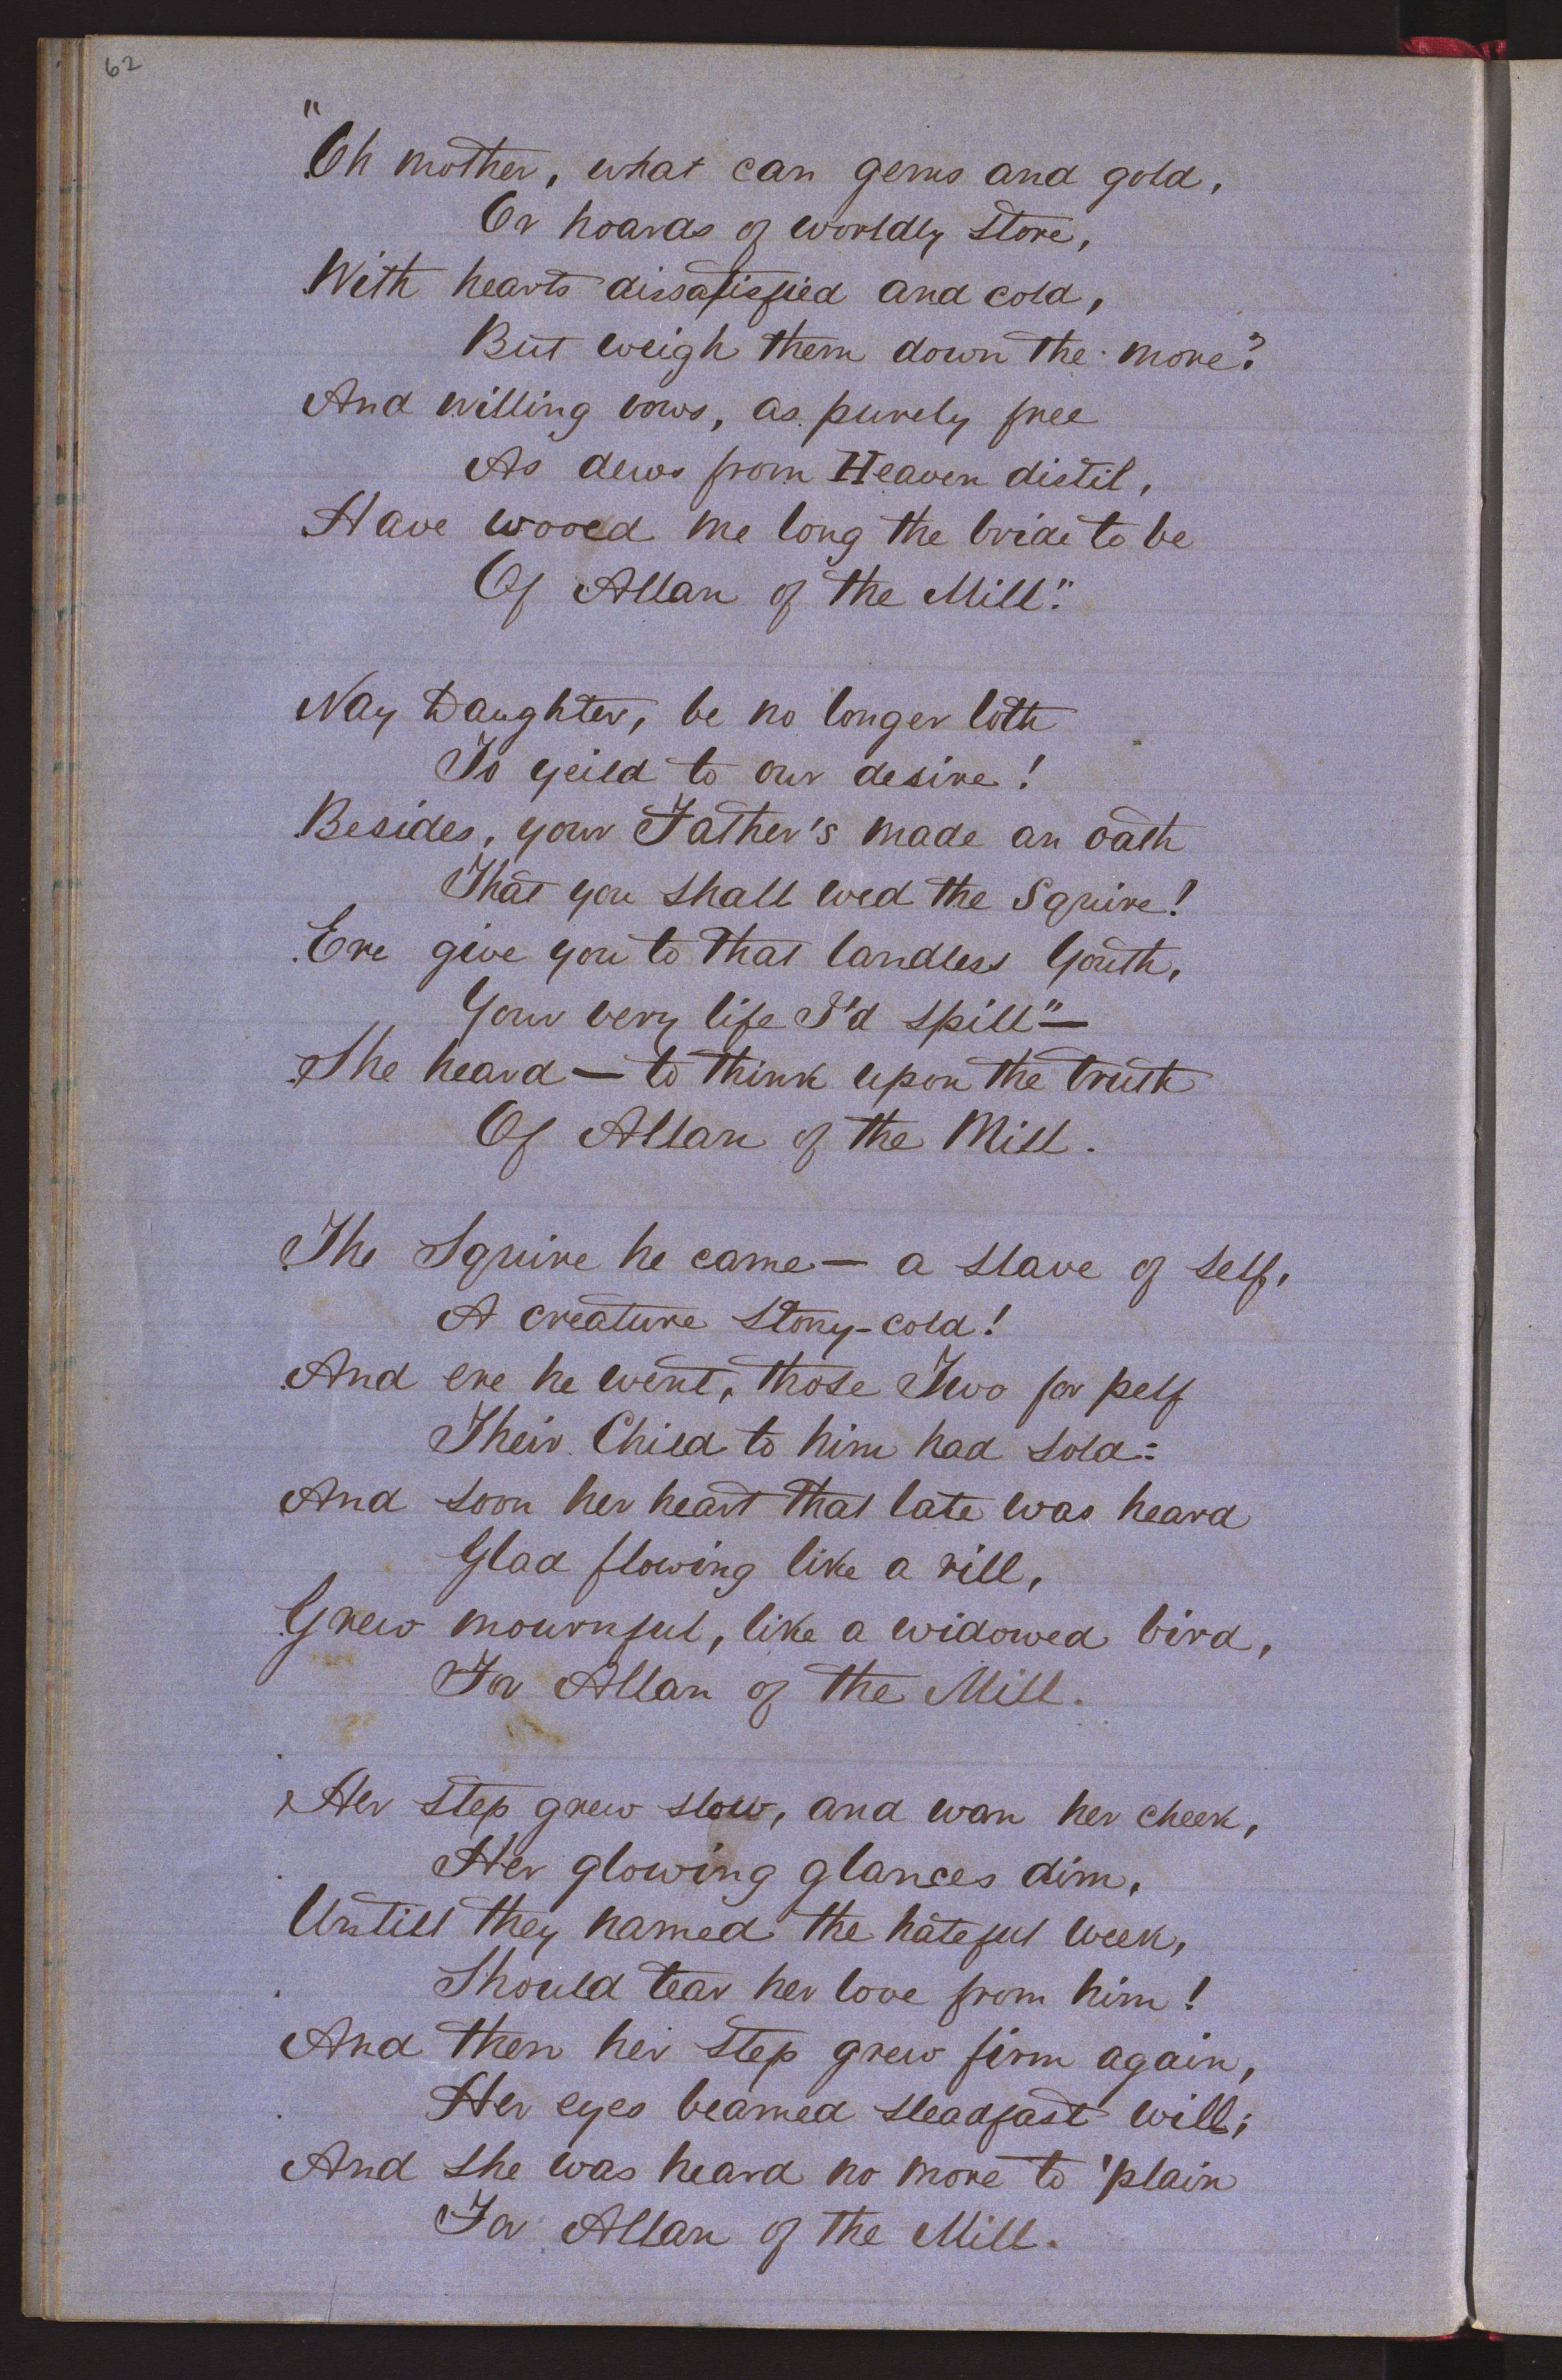 62
"Oh mother, what can gems and gold,
Or hoards of worldly store,
With hearts dissatisfied and cold,
But weigh them down the more?
And willing vows, as purely free
As dews from Heaven distil,
Have wooed me long the bride to be
Of Allan of the Mill."
Nay Daughter, be no longer loth
To yeild to our desire!
Besides, your Father's made an oath
That you shall wed the Squire!
Ere give you to that landless Youth,
Your very life I'd spill"—
She heard — to think upon the truth
Of Allan of the Mill.
The Squire he came — a slave of self,
A creature stony-cold!
And ere he went, those Two for pelf
Their Child to him had sold:
And soon her heart that late was heard
Glad flowing like a rill,
Grew mournful, like a widowed bird,
For Allan of the Mill.
Her step grew slow, and wan her cheek,
Her glowing glances dim,
Untill they named the hateful week,
Should tear her love from him!
And then her step grew firm again,
Her eyes beamed steadfast will;
And she was heard no more to 'plain
For Allan of the Mill.